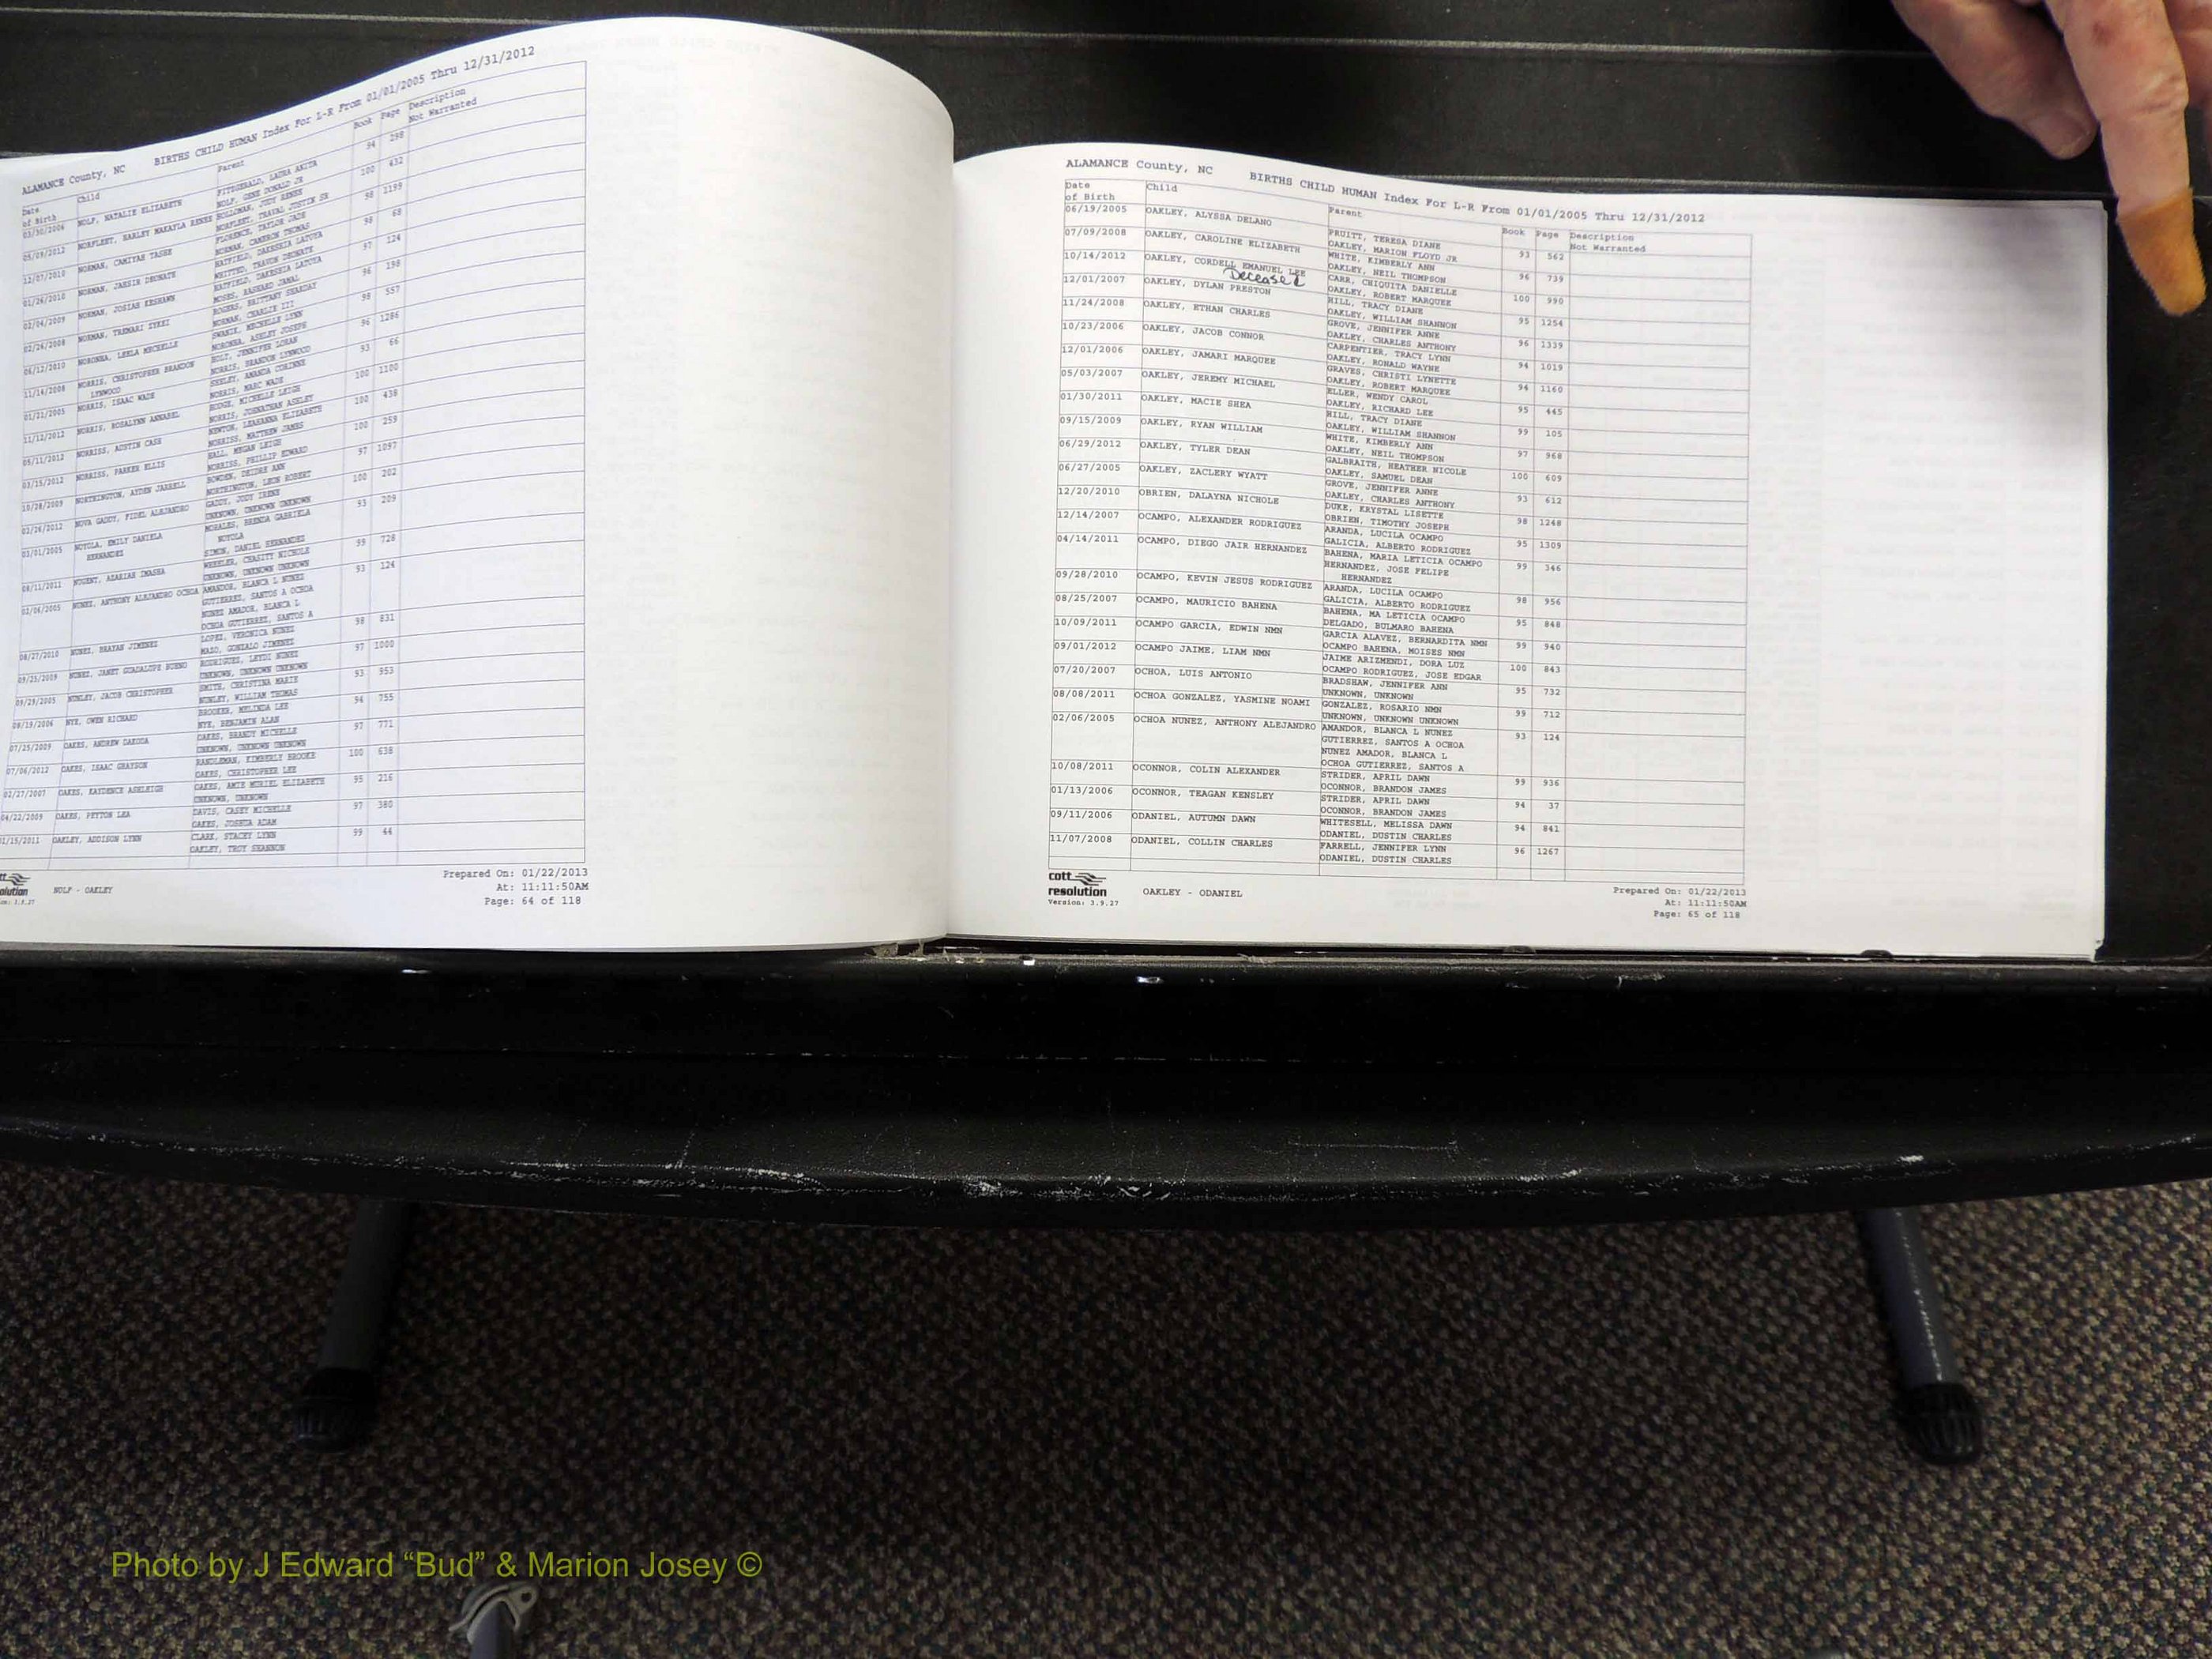 ALAMANCE County, NC BIRTHS CHILD HUMAN Index For L-R From 01/01/2005 Thru 12/31/2012
Date of Birth Child Parent Book Page Description Not Warranted
03/30/2006 NOLF, NATALIE ELIZABETH FITZGERALD, LAURA AKITA 94 298
NOLF, GENE DONALD JR
05/09/2012 NORFLEET, HARLEY MAKAYLA RENEE HOLLOMAN, JUDY RENEE 100 432
NORFLEET, TRAVAL JUSTIN SR
12/07/2010 NORMAN, CAMIYAH TASHE FLORENCE, TAYLOR JADE 98 1199
NORMAN, CAMERON THOMAS
01/26/2010 NORMAN, JAHSIR DEONATE HATFIELD, DAKESHIA LATOYA 98 68
WHITTED, TRAVON DEONATE
02/04/2009 NORMAN, JOSIAH KESHAWN HATFIELD, DAKESHIA LATOYA 97 124
MOSES, RASHARD JAMAL
02/26/2008 NORMAN, TREMARI ZYKEI ROGERS, BRITTANY SHARDAY 96 198
NORMAN, CHARLIE III
06/12/2010 NORONHA, LEELA MICHELLE SWANIK, MICHELLE LYNN 98 557
NORONHA, ASHLEY JOSEPH
11/14/2008 NORRIS, CHRISTOPHER BRANDON LYNWOOD HOLT, JENNIFER LORAN 96 1286
NORRIS, BRANDON LYNWOOD
01/21/2005 NORRIS, ISAAC WADE SEELEY, AMANDA CORINNE 93 66
NORRIS, MARC WADE
11/12/2012 NORRIS, ROSALYNN ANNABEL HODGE, MICHELLE LEIGH 100 1100
NORRIS, JOHNATHAN ASHLEY
05/11/2012 NORRISS, AUSTIN CASE NEWTON, LEAHANNA ELIZABETH 100 438
NORRISS, MATTHEW JAMES
03/15/2012 NORRISS, PARKER ELLIS HALL, MEGAN LEIGH 100 259
NORRISS, PHILLIP EDWARD
10/28/2009 NORTHINGTON, AYDEN JARRELL BOWDEN, DEIDRE ANN 97 1097
NORTHINGTON, LEON ROBERT
02/26/2012 NOVA GADDY, FIDEL ALEJANDRO GADDY, JODY IRENE 100 202
UNKNOWN, UNKNOWN UNKNOWN
03/01/2005 NOYOLA, EMILY DANIELA HERNANDEZ MORALES, BRENDA GABRIELA NOYOLA 93 209
SIMON, DANIEL HERNANDEZ
08/11/2011 NUGENT, AZARIAH IMASHA WHEELER, CHASITY NICHOLE 99 728
UNKNOWN, UNKNOWN UNKNOWN
02/06/2005 NUNEZ, ANTHONY ALEJANDRO OCHOA AMANDOR, BLANCA L NUNEZ 93 124
GUTIERREZ, SANTOS A OCHOA
NUNEZ AMADOR, BLANCA L
OCHOA GUTIERREZ, SANTOS A
08/27/2010 NUNEZ, BRAYAN JIMENEZ LOPEZ, VERONICA NUNEZ 98 831
MASO, GONZALO JIMENEZ
09/25/2009 NUNEZ, JANET GUADALUPE BUENO RODRIGUEZ, LEYDI NUNEZ 97 1000
UNKNOWN, UNKNOWN UNKNOWN
09/29/2005 NUNLEY, JACOB CHRISTOPHER SMITH, CHRISTINA MARIE 93 953
NUNLEY, WILLIAM THOMAS
08/19/2006 NYE, OWEN RICHARD BROOKER, MELINDA LEE 94 755
NYE, BENJAMIN ALAN
07/25/2009 OAKES, ANDREW DAKODA OAKES, BRANDY MICHELLE 97 771
UNKNOWN, UNKNOWN UNKNOWN
07/06/2012 OAKES, ISAAC GRAYSON RANDLEMAN, KIMBERLY BROOKE 100 638
OAKES, CHRISTOPHER LEE
02/27/2007 OAKES, KAYDENCE ASHLEIGH OAKES, AMIE MURIEL ELIZABETH 95 216
UNKNOWN, UNKNOWN
04/22/2009 OAKES, PEYTON LEA DAVIS, CASEY MICHELLE 97 380
OAKES, JOSHUA ADAM
1/15/2011 OAKLEY, ADDISON LYNN CLARK, STACEY LYNN 99 44
OAKLEY, TROY SHANNON
NOLF - OAKLEY
Prepared On: 01/22/2013
At: 11:11:50AM
Page: 64 of 118
ALAMANCE County, NC BIRTHS CHILD HUMAN Index For L-R From 01/01/2005 Thru 12/31/2012
Date of Birth Child Parent Book Page Description Not Warranted
06/19/2005 OAKLEY, ALYSSA DELANO PRUITT, TERESA DIANE 93 562
OAKLEY, MARION FLOYD JR
07/09/2008 OAKLEY, CAROLINE ELIZABETH WHITE, KIMBERLY ANN 96 739
OAKLEY, NEIL THOMPSON
10/14/2012 OAKLEY, CORDELL EMANUEL LEE CARR, CHIQUITA DANIELLE 100 990
Deceased OAKLEY, ROBERT MARQUEE
12/01/2007 OAKLEY, DYLAN PRESTON HILL, TRACY DIANE 95 1254
OAKLEY, WILLIAM SHANNON
11/24/2008 OAKLEY, ETHAN CHARLES GROVE, JENNIFER ANNE 96 1339
OAKLEY, CHARLES ANTHONY
10/23/2006 OAKLEY, JACOB CONNOR CARPENTIER, TRACY LYNN 94 1019
OAKLEY, RONALD WAYNE
12/01/2006 OAKLEY, JAMARI MARQUEE GRAVES, CHRISTI LYNETTE 94 1160
OAKLEY, ROBERT MARQUEE
05/03/2007 OAKLEY, JEREMY MICHAEL ELLER, WENDY CAROL 95 445
OAKLEY, RICHARD LEE
01/30/2011 OAKLEY, MACIE SHEA HILL, TRACY DIANE 99 105
OAKLEY, WILLIAM SHANNON
09/15/2009 OAKLEY, RYAN WILLIAM WHITE, KIMBERLY ANN 97 968
OAKLEY, NEIL THOMPSON
06/29/2012 OAKLEY, TYLER DEAN GALBRAITH, HEATHER NICOLE 100 609
OAKLEY, SAMUEL DEAN
06/27/2005 OAKLEY, ZACLERY WYATT GROVE, JENNIFER ANNE 93 612
OAKLEY, CHARLES ANTHONY
12/20/2010 OBRIEN, DALAYNA NICHOLE DUKE, KRYSTAL LISETTE 98 1248
OBRIEN, TIMOTHY JOSEPH
12/14/2007 OCAMPO, ALEXANDER RODRIGUEZ ARANDA, LUCILA OCAMPO 95 1309
GALICIA, ALBERTO RODRIGUEZ
04/14/2011 OCAMPO, DIEGO JAIR HERNANDEZ BAHENA, MARIA LETICIA OCAMPO 99 346
HERNANDEZ, JOSE FELIPE
HERNANDEZ
09/28/2010 OCAMPO, KEVIN JESUS RODRIGUEZ ARANDA, LUCILA OCAMPO 98 956
GALICIA, ALBERTO RODRIGUEZ
08/25/2007 OCAMPO, MAURICIO BAHENA BAHENA, MA LETICIA OCAMPO 95 848
DELGADO, BULMARO BAHENA
10/09/2011 OCAMPO GARCIA, EDWIN NMN GARCIA ALAVEZ, BERNARDITA NMN 99 940
OCAMPO BAHENA, MOISES NMN
09/01/2012 OCAMPO JAIME, LIAM NMN JAIME ARIZMENDI, DORA LUZ 100 843
OCAMPO RODRIGUEZ, JOSE EDGAR
07/20/2007 OCHOA, LUIS ANTONIO BRADSHAW, JENNIFER ANN 95 732
UNKNOWN, UNKNOWN
08/08/2011 OCHOA GONZALEZ, YASMINE NOAMI GONZALEZ, ROSARIO NMN 99 712
UNKNOWN, UNKNOWN UNKNOWN
02/06/2005 OCHOA NUNEZ, ANTHONY ALEJANDRO AMANDOR, BLANCA L NUNEZ 93 124
GUTIERREZ, SANTOS A OCHOA
NUNEZ AMADOR, BLANCA L
OCHOA GUTIERREZ, SANTOS A
10/08/2011 OCONNOR, COLIN ALEXANDER STRIDER, APRIL DAWN 99 936
OCONNOR, BRANDON JAMES
01/13/2006 OCONNOR, TEAGAN KENSLEY STRIDER, APRIL DAWN 94 37
OCONNOR, BRANDON JAMES
09/11/2006 ODANIEL, AUTUMN DAWN WHITESELL, MELISSA DAWN 94 841
ODANIEL, DUSTIN CHARLES
11/07/2008 ODANIEL, COLLIN CHARLES FARRELL, JENNIFER LYNN 96 1267
ODANIEL, DUSTIN CHARLES
cott
resolution
Version: 3.9.27
OAKLEY - ODANIEL
Prepared On: 01/22/2013
At: 11:11:50AM
Page: 65 of 118
Photo by J Edward “Bud” & Marion Josey ©